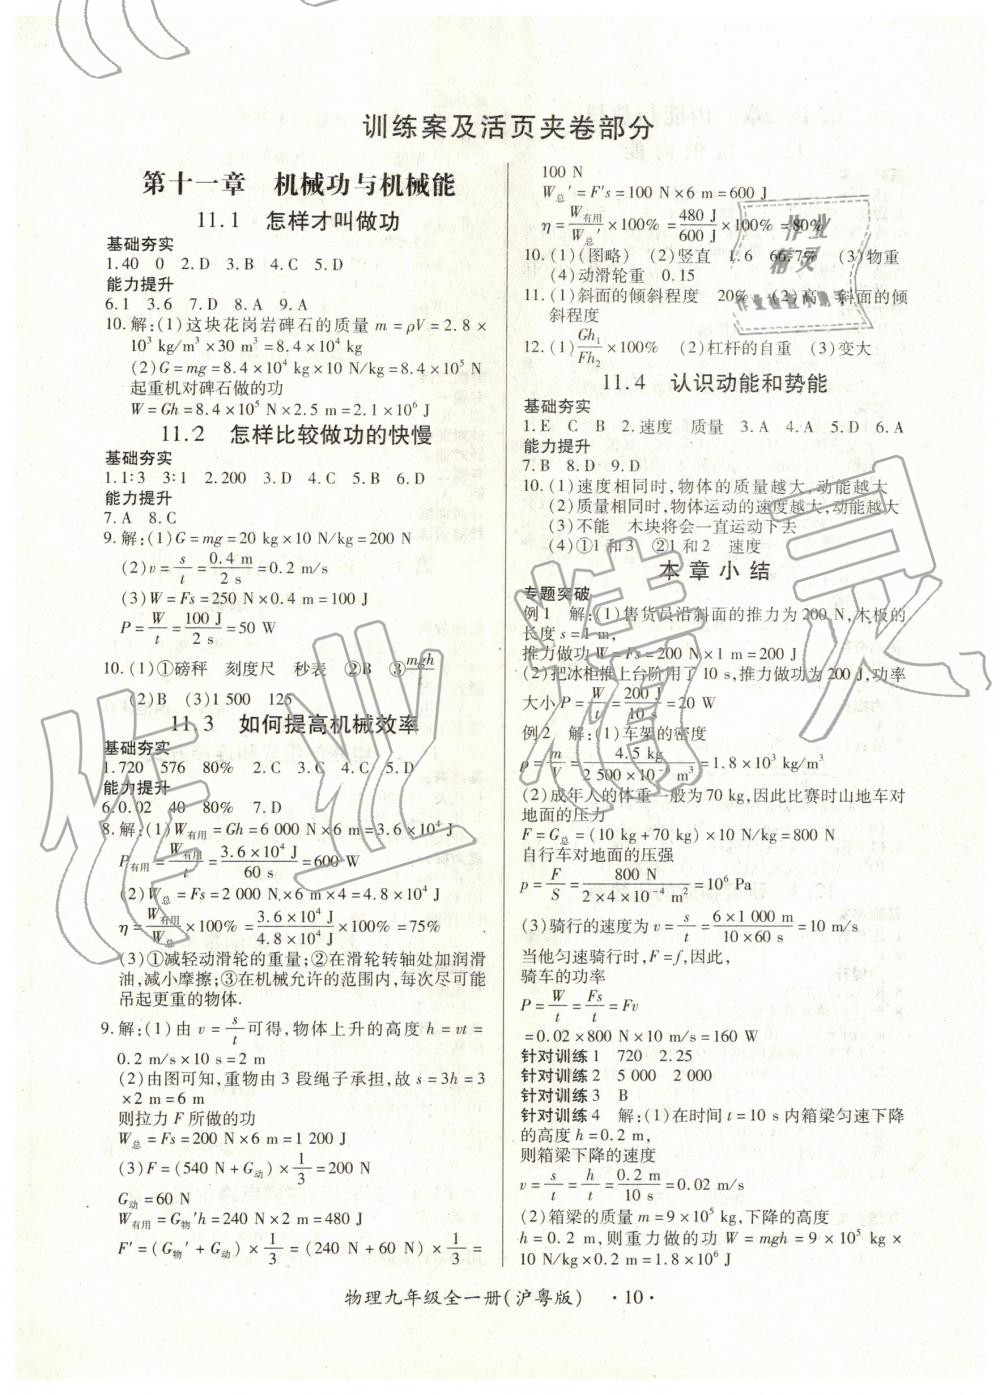 训练案及活页夹卷部分
第十一章　机械功与机械能
11.1　怎样才叫做功
基础夯实
1.40　0　2.D　3.B　4.C　5.D
能力提升
6.1　3.6　7.D　8.A　9.A
10.解:(1)这块花岗岩碑石的质量 m=ρV=2.8×
10³ kg/m³×30 m³=8.4×10⁴ kg
(2)G=mg=8.4×10⁴ kg×10 N/kg=8.4×10⁵ N
起重机对碑石做的功
W=Gh=8.4×10⁵ N×2.5 m=2.1×10⁶ J
11.2　怎样比较做功的快慢
基础夯实
1.1∶3　3∶1　2.200　3.D　4.B　5.C　6.D
能力提升
7.A　8.C
9.解:(1)G=mg=20 kg×10 N/kg=200 N
(2)v=s/t=0.4 m/2 s=0.2 m/s
(3)W=Fs=250 N×0.4 m=100 J
P=W/t=100 J/2 s=50 W
10.(1)①磅秤　刻度尺　秒表　②B　③mgh/t
(2)B　(3)1 500　125
11.3　如何提高机械效率
基础夯实
1.720　576　80%　2.C　3.C　4.C　5.D
能力提升
6.0.02　40　80%　7.D
8.解:(1)W有用=Gh=6 000 N×6 m=3.6×10⁴ J
P有用=W有用/t=3.6×10⁴ J/60 s=600 W
(2)W总=Fs=2 000 N×6 m×4=4.8×10⁴ J
η=W有用/W总×100%=3.6×10⁴ J/4.8×10⁴ J×100%=75%
(3)①减轻动滑轮的重量;②在滑轮转轴处加润滑
油,减小摩擦;③在机械允许的范围内,每次尽可能
吊起更重的物体.
9.解:(1)由 v=s/t可得,物体上升的高度 h=vt=
0.2 m/s×10 s=2 m
(2)由图可知,重物由 3 段绳子承担,故 s=3h=3
×2 m=6 m
则拉力 F 所做的功
W总=Fs=200 N×6 m=1 200 J
(3)F=(540 N+G动)×1/3=200 N
G动=60 N
W有用=G物′h=240 N×2 m=480 J
F′=(G物′+G动)×1/3=(240 N+60 N)×1/3=
100 N
W总′=F′s=100 N×6 m=600 J
η=W有用/W总′×100%=480 J/600 J×100%=80%
10.(1)(图略)　(2)竖直　1.6　66.7%　(3)物重
(4)动滑轮重　0.15
11.(1)斜面的倾斜程度　20%　(2)高　斜面的倾
斜程度
12.(1)Gh₁/Fh₂×100%　(2)杠杆的自重　(3)变大
11.4　认识动能和势能
基础夯实
1.E　C　B　2.速度　质量　3.A　4.A　5.D　6.A
能力提升
7.B　8.D　9.D
10.(1)速度相同时,物体的质量越大,动能越大
(2)质量相同时,物体运动的速度越大,动能越大
(3)不能　木块将会一直运动下去
(4)①1 和 3　②1 和 2　速度
本章小结
专题突破
例 1　解:(1)售货员沿斜面的推力为 200 N,木板的
长度 s=1 m,
推力做功 W=Fs=200 N×1 m=200 J
(2)把冰柜推上台阶用了 10 s,推力做功为 200 J,功率
大小 P=W/t=200 J/10 s=20 W
例 2　解:(1)车架的密度
ρ=m/V=4.5 kg/2 500×10⁻⁶ m³=1.8×10³ kg/m³
(2)成年人的体重一般为 70 kg,因此比赛时山地车对
地面的压力
F=G总=(10 kg+70 kg)×10 N/kg=800 N
自行车对地面的压强
p=F/S=800 N/2×4×10⁻⁴ m²=10⁶ Pa
(3)骑行的速度为 v=s/t=6×1 000 m/10×60 s=10 m/s
当他匀速骑行时,F=f,因此,
骑车的功率
P=W/t=Fs/t=Fv
=0.02×800 N×10 m/s=160 W
针对训练 1　720　2.25
针对训练 2　5 000　2 000
针对训练 3　B
针对训练 4　解:(1)在时间 t=10 s 内箱梁匀速下降
的高度 h=0.2 m,
则箱梁下降的速度
v=s/t=h/t=0.2 m/10 s=0.02 m/s
(2)箱梁的质量 m=9×10⁵ kg,下降的高度
h=0.2 m,则重力做的功 W=mgh=9×10⁵ kg×
10 N/kg×0.2 m=1.8×10⁶ J
物理九年级全一册(沪粤版)　·10·
作业精灵